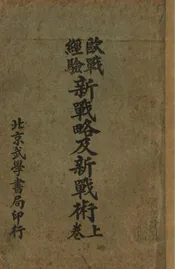 歐戰
經驗
新戰略及新戰術
上卷
北京武學書局印行